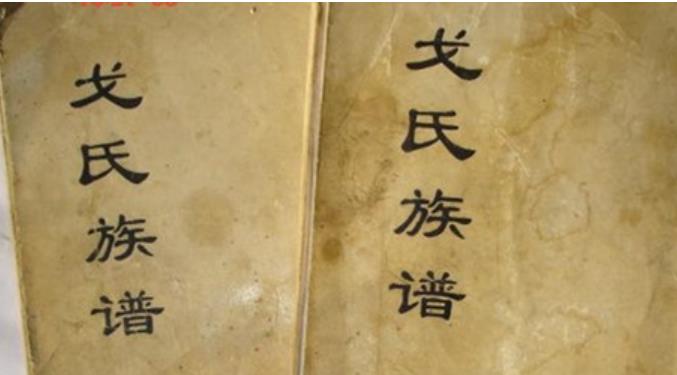 戈氏族谱
戈氏族谱